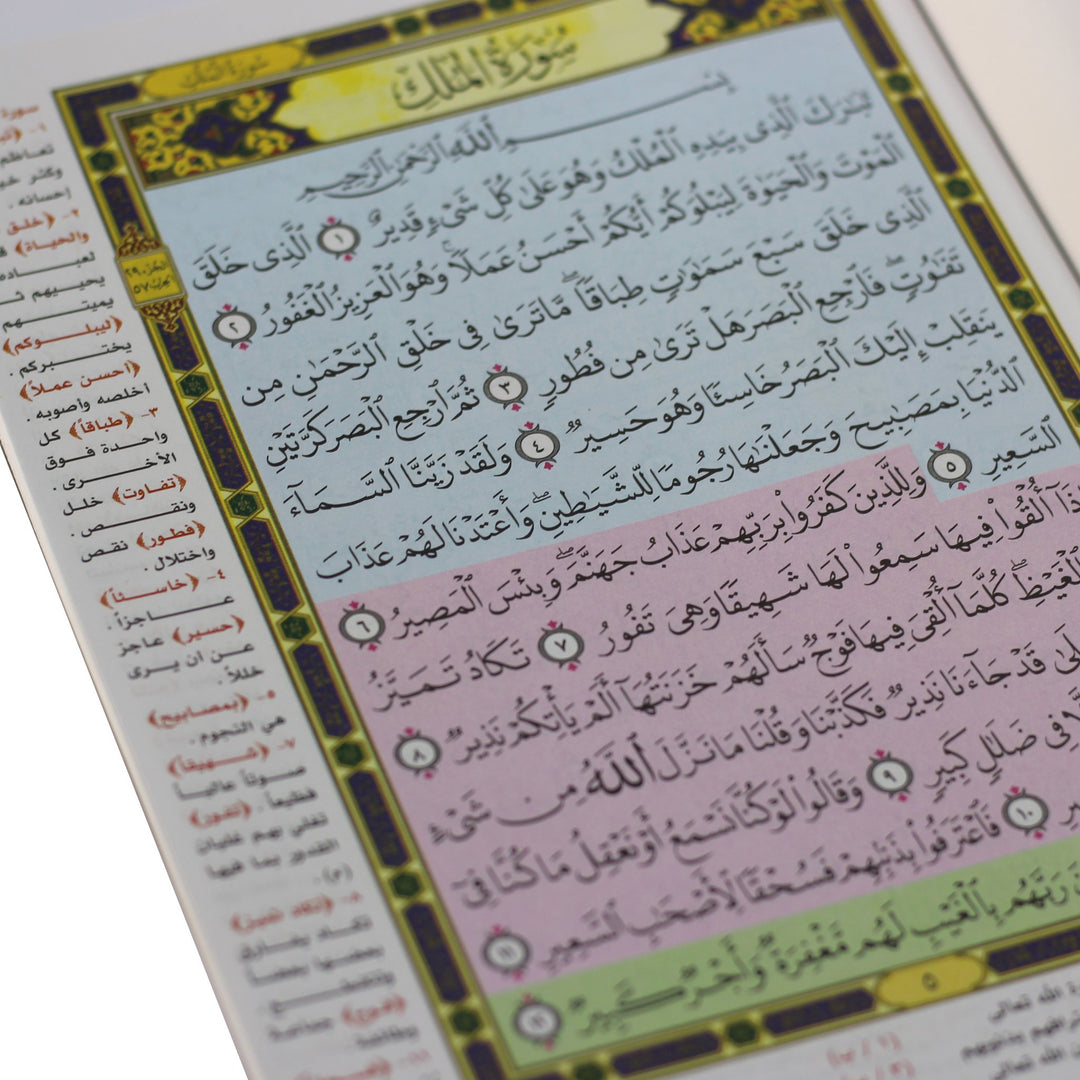 سُورَةُ الْمُلْكِ
بِسْمِ ٱللَّهِ ٱلرَّحْمَٰنِ ٱلرَّحِيمِ
تَبَٰرَكَ ٱلَّذِى بِيَدِهِ ٱلْمُلْكُ وَهُوَ عَلَىٰ كُلِّ شَىْءٍ قَدِيرٌ ١ ٱلَّذِى خَلَقَ
ٱلْمَوْتَ وَٱلْحَيَوٰةَ لِيَبْلُوَكُمْ أَيُّكُمْ أَحْسَنُ عَمَلًا ۚ وَهُوَ ٱلْعَزِيزُ ٱلْغَفُورُ ٢
ٱلَّذِى خَلَقَ سَبْعَ سَمَٰوَٰتٍ طِبَاقًا ۖ مَّا تَرَىٰ فِى خَلْقِ ٱلرَّحْمَٰنِ مِن
تَفَٰوُتٍ ۖ فَٱرْجِعِ ٱلْبَصَرَ هَلْ تَرَىٰ مِن فُطُورٍ ٣ ثُمَّ ٱرْجِعِ ٱلْبَصَرَ كَرَّتَيْنِ
يَنقَلِبْ إِلَيْكَ ٱلْبَصَرُ خَاسِئًا وَهُوَ حَسِيرٌ ٤ وَلَقَدْ زَيَّنَّا ٱلسَّمَآءَ
ٱلدُّنْيَا بِمَصَٰبِيحَ وَجَعَلْنَٰهَا رُجُومًا لِّلشَّيَٰطِينِ ۖ وَأَعْتَدْنَا لَهُمْ عَذَابَ
ٱلسَّعِيرِ ٥ وَلِلَّذِينَ كَفَرُوا۟ بِرَبِّهِمْ عَذَابُ جَهَنَّمَ ۖ وَبِئْسَ ٱلْمَصِيرُ ٦
أُلْقُوا۟ فِيهَا سَمِعُوا۟ لَهَا شَهِيقًا وَهِىَ تَفُورُ ٧ تَكَادُ تَمَيَّزُ
ٱلْغَيْظِ ۖ كُلَّمَآ أُلْقِىَ فِيهَا فَوْجٌ سَأَلَهُمْ خَزَنَتُهَآ أَلَمْ يَأْتِكُمْ نَذِيرٌ ٨
قَدْ جَآءَنَا نَذِيرٌ فَكَذَّبْنَا وَقُلْنَا مَا نَزَّلَ ٱللَّهُ مِن شَىْءٍ
فِى ضَلَٰلٍ كَبِيرٍ ٩ وَقَالُوا۟ لَوْ كُنَّا نَسْمَعُ أَوْ نَعْقِلُ مَا كُنَّا فِىٓ
١٠ فَٱعْتَرَفُوا۟ بِذَنۢبِهِمْ فَسُحْقًا لِّأَصْحَٰبِ ٱلسَّعِيرِ ١١
رَبَّهُم بِٱلْغَيْبِ لَهُم مَّغْفِرَةٌ وَأَجْرٌ كَبِيرٌ ١٢
٥
والحياة﴾
يحييهم
يميتهم
﴿ليبلوكم﴾
يختبركم .
﴿أحسن عملاً﴾
أخلصه وأصوبه .
٣- ﴿طباقاً﴾ كل
واحدة فوق
الأخرى .
﴿تفاوت﴾ خلل
ونقص .
﴿فطور﴾ نقص
واختلال .
٤- ﴿خاسئاً﴾
عاجزاً .
﴿حسير﴾ عاجز
عن أن يرى
خللاً .
٥- ﴿بمصابيح﴾
هي النجوم .
٧- ﴿شهيقاً﴾
صوتاً عالياً
فظيعاً . ﴿تفور﴾
تغلي بهم غليان
القدور بما فيها